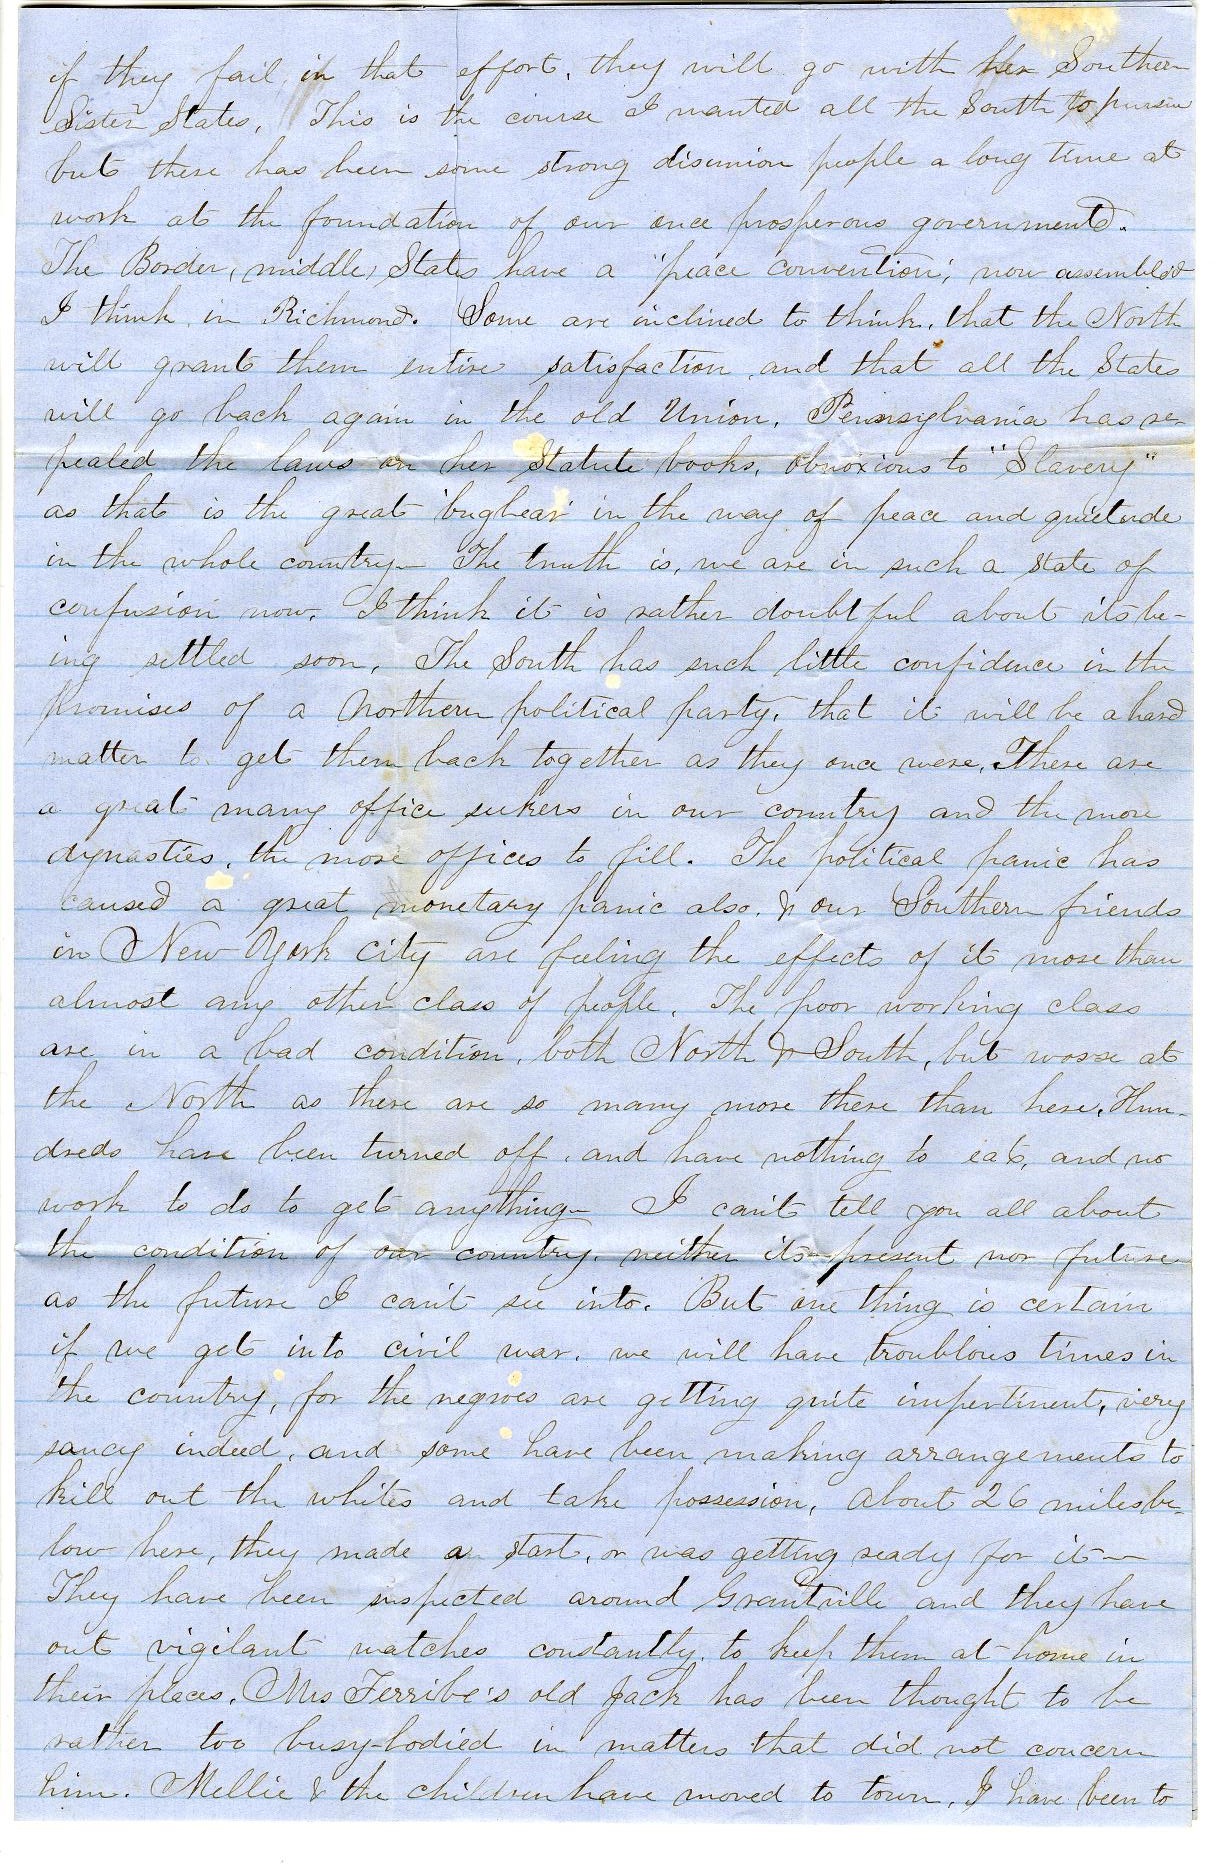 if they fail in that effort, they will go with her Southern
Sister States. This is the course I wanted all the South to pursue
but there has been some strong disunion people a long time at
work at the foundation of our once prosperous government.
The Border, (middle) States have a "peace convention", now assembled
I think in Richmond. Some are inclined to think, that the North
will grant them entire satisfaction and that all the States
will go back again in the old Union. Pennsylvania has re-
pealed the laws on her Statute books, obnoxious to "Slavery"
as that is the great 'bugbear' in the way of peace and quietude
in the whole country— The truth is, we are in such a state of
confusion now. I think it is rather doubtful about its be-
ing settled soon. The South has such little confidence in the
promises of a Northern political party, that it will be a hard
matter to get them back together as they once were. There are
a great many office seekers in our country and the more
dynasties, the more offices to fill. The political panic has
caused a great monetary panic also, & our Southern friends
in New York City are feeling the effects of it more than
almost any other class of people. The poor working class
are in a bad condition, both North & South, but worse at
the North as there are so many more there than here. Hun-
dreds have been turned off, and have nothing to eat, and no
work to do to get anything— I can't tell you all about
the condition of our country, neither its present nor future
as the future I can't see into. But one thing is certain
if we get into civil war, we will have troublous times in
the country, for the negroes are getting quite impertinent, very
saucy indeed, and some have been making arrangements to
kill out the whites and take possession. About 26 miles be-
low here, they made a start, or was getting ready for it—
They have been suspected around Grantville and they have
out vigilant watches constantly to keep them at home in
their places. Mrs Terribe's old Jack has been thought to be
rather too busy-bodied in matters that did not concern
him. Mellie & the children have moved to town. I have been to